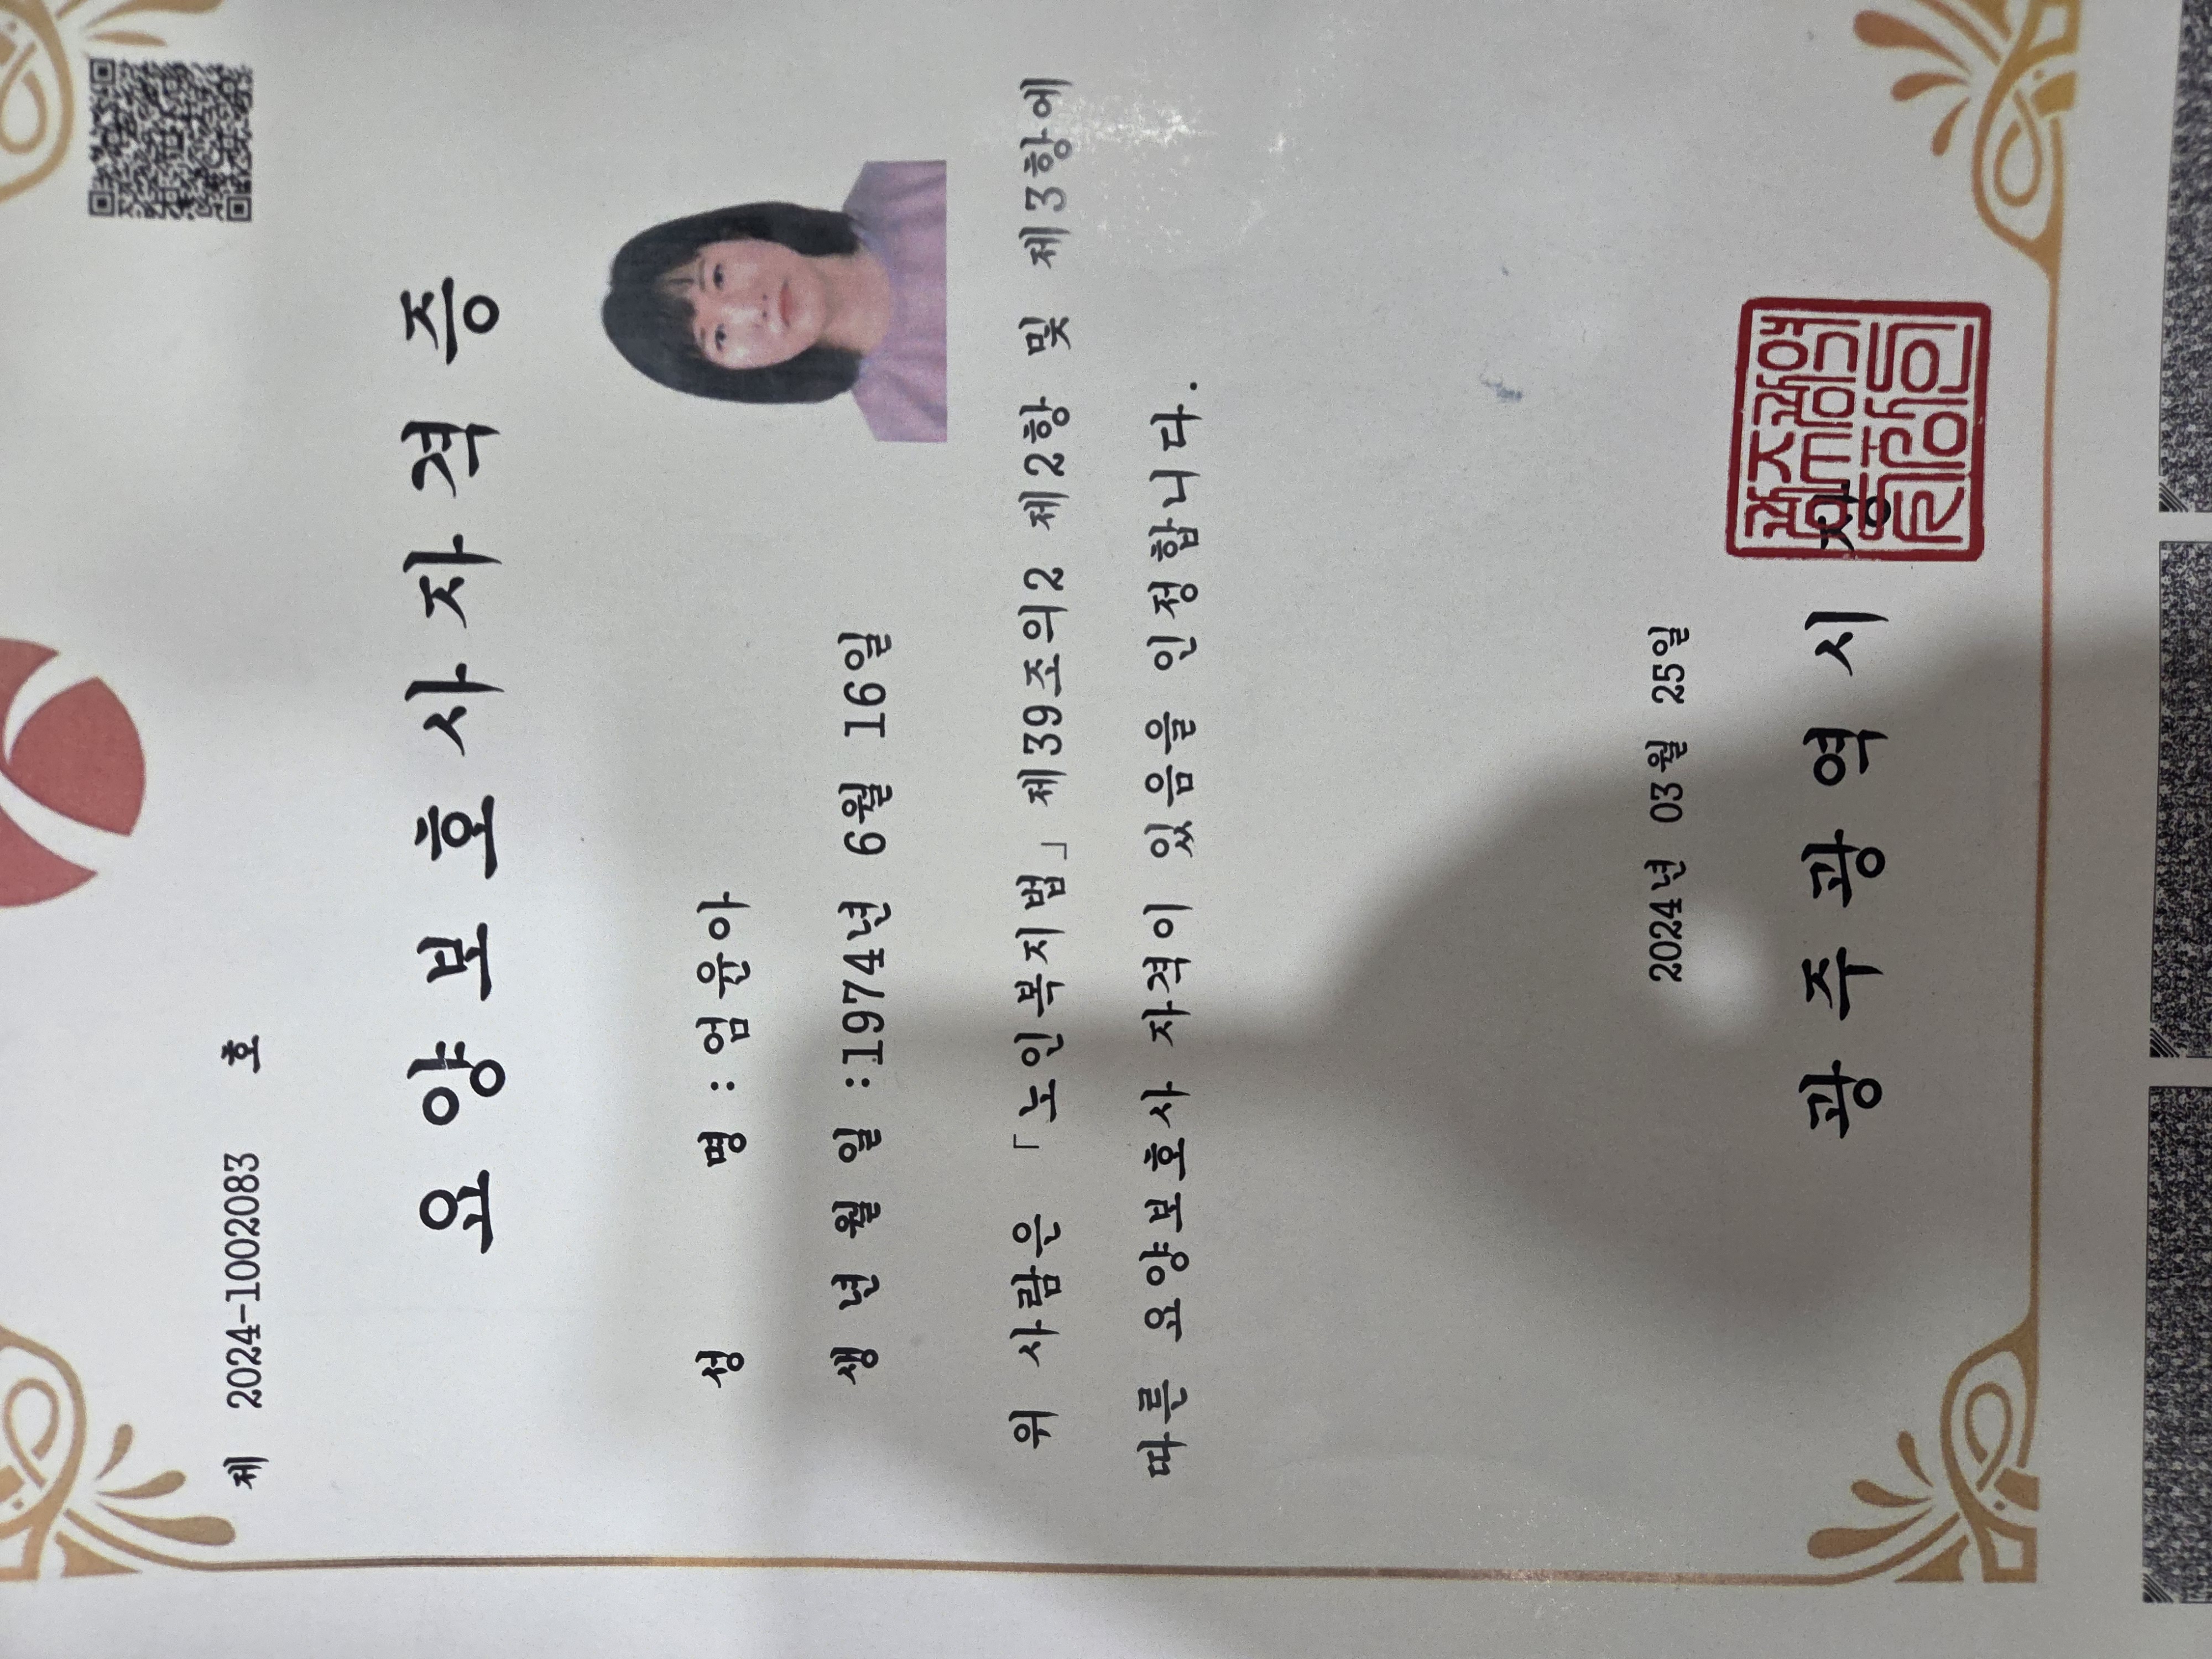 제 2024-1002083 호
요양보호사자격증
성 명 : 엄윤아
생년월일 : 1974년 6월 16일
위 사람은 「노인복지법」 제39조의2 제2항 및 제3항에
따른 요양보호사 자격이 있음을 인정합니다.
2024년 03월 25일
광주광역시장